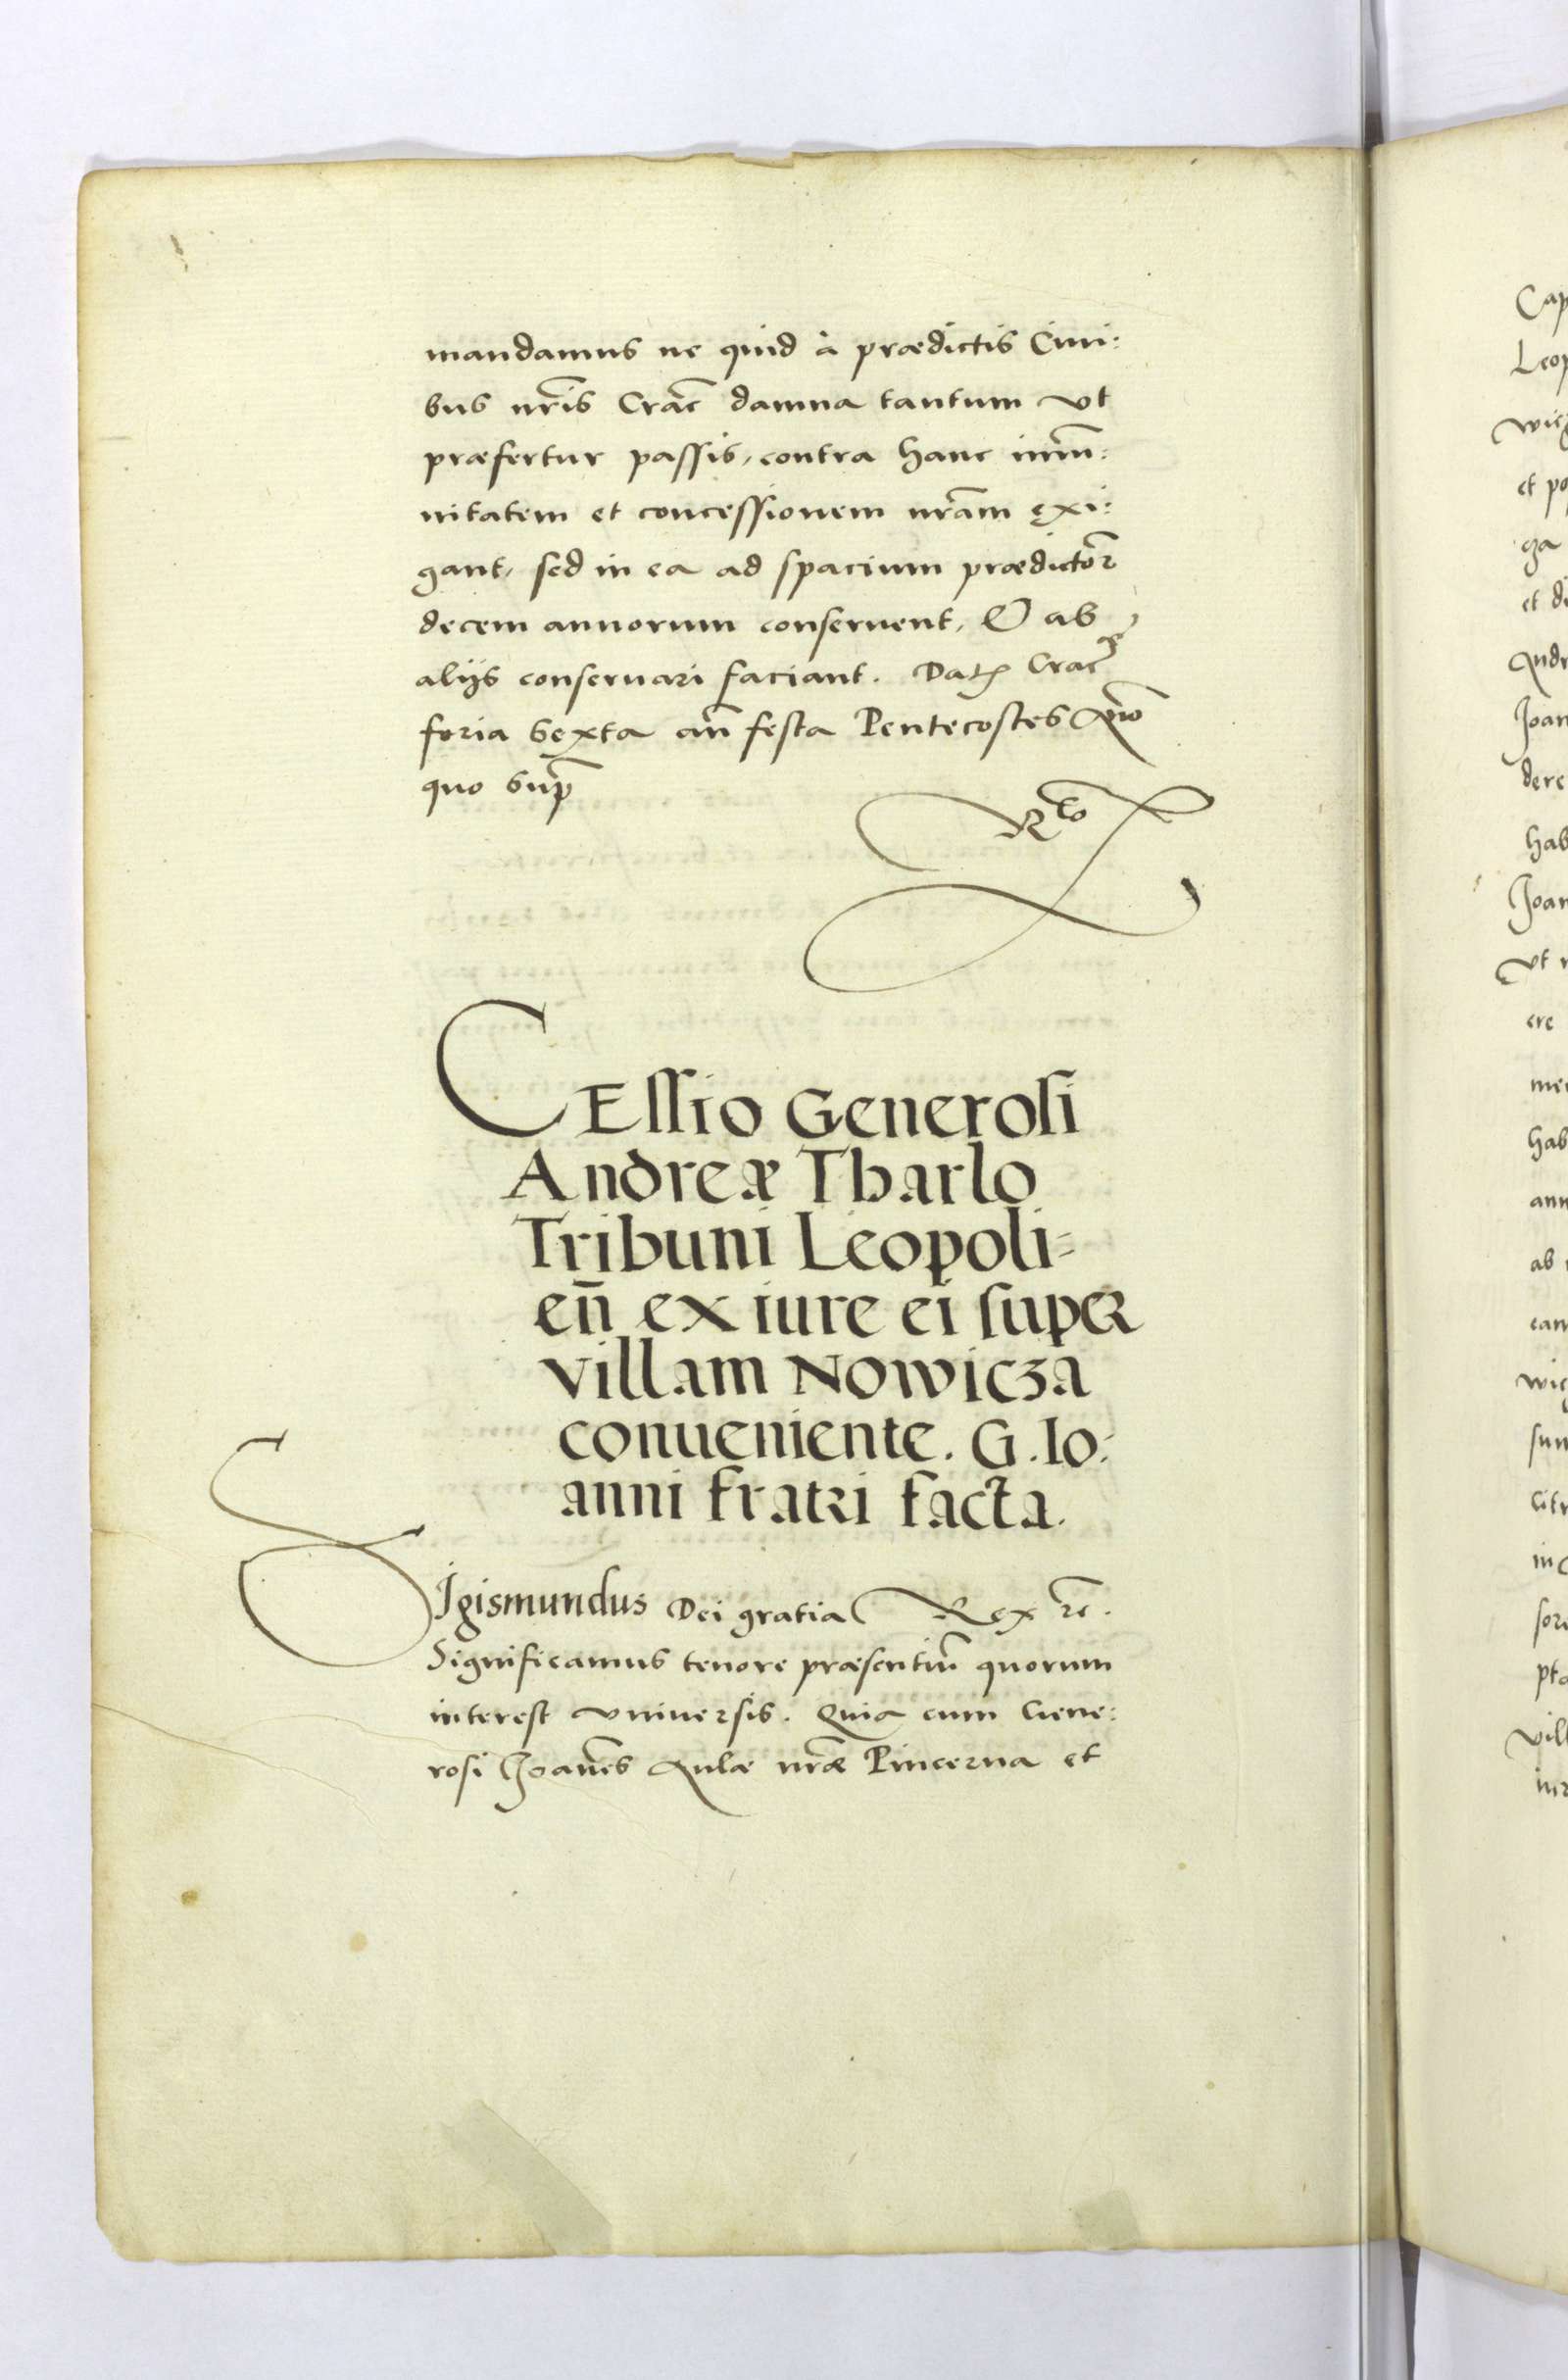 mandamus ne quid à prædictis Ciui:
bus nr̃is Crac̃ damna tantum vt
præfertur passis, contra hanc imm̃:
nitatem et concessionem nr̃am exi:
gant, sed in ea ad spacium prædictor̃
decem annorum conseruent, & ab
alijs conseruari faciant. Dat Crac̃
feria Sexta añ festa Pentecostes Añno
quo sup̃
Rᵗᵒ
CEssio Generosi
Andreæ Tharlo
Tribuni Leopoli=
eñ ex iure ei super
villam Nowicza
conueniente. G. Io:
anni fratri facta.
SIgismundus Dei gratia Rex rc̃.
Significamus tenore præsentiũ quorum
interest vniuersis. Quia cum Gene:
rosi Joañes Aulæ nr̃æ Pincerna et
Cap
Leop
wicz
et po
ga
et di
Andr
Joan
dere
hab
Joan
vt
ere
me
hab
ann
ab
cam
wic
sun
litr
in
sor
pta
vill